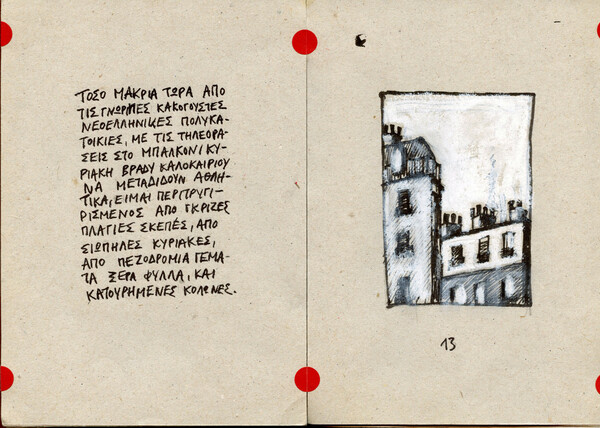 ΤΟΣΟ ΜΑΚΡΙΑ ΤΩΡΑ ΑΠΟ
ΤΙΣ ΓΝΩΡΙΜΕΣ ΚΑΚΟΓΟΥΣΤΕΣ
ΝΕΟΕΛΛΗΝΙΚΕΣ ΠΟΛΥΚΑ-
ΤΟΙΚΙΕΣ, ΜΕ ΤΙΣ ΤΗΛΕΟΡΑ-
ΣΕΙΣ ΣΤΟ ΜΠΑΛΚΟΝΙ ΚΥ-
ΡΙΑΚΗ ΒΡΑΔΥ ΚΑΛΟΚΑΙΡΙΟΥ
ΝΑ ΜΕΤΑΔΙΔΟΥΝ ΑΘΛΗ-
ΤΙΚΑ, ΕΙΜΑΙ ΠΕΡΙΤΡΥΓΙ-
ΡΙΣΜΕΝΟΣ ΑΠΟ ΓΚΡΙΖΕΣ
ΠΛΑΓΙΕΣ ΣΚΕΠΕΣ, ΑΠΟ
ΣΙΩΠΗΛΕΣ ΚΥΡΙΑΚΕΣ,
ΑΠΟ ΠΕΖΟΔΡΟΜΙΑ ΓΕΜΑ-
ΤΑ ΞΕΡΑ ΦΥΛΛΑ, ΚΑΙ
ΚΑΤΟΥΡΗΜΕΝΕΣ ΚΟΛΩΝΕΣ.
13